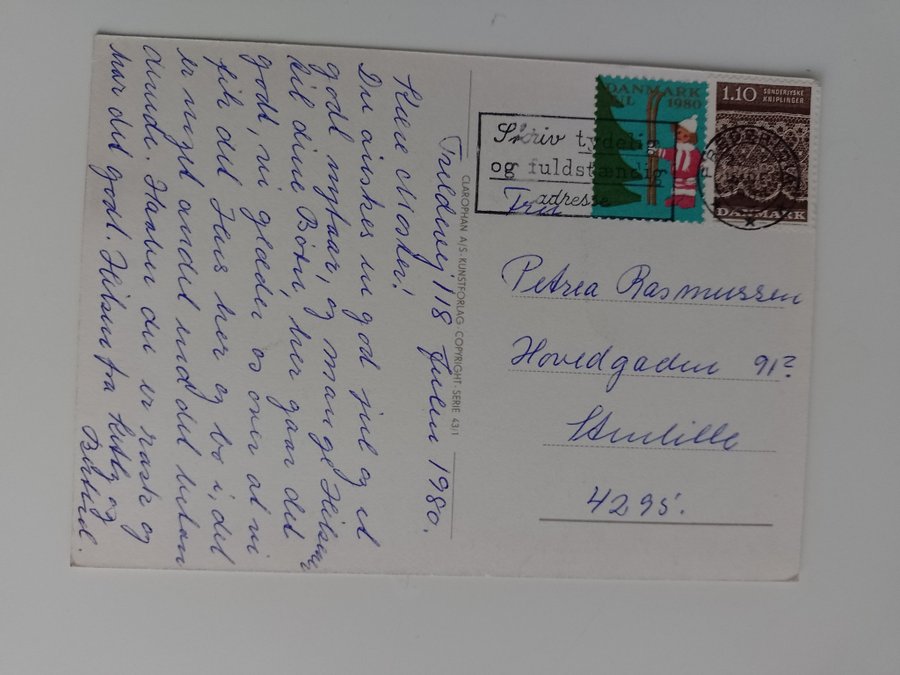 Fuldvej, 118 Julen 1980.
Kære Moster!
Du ønskes en god jul og et
godt nytaar, og mange Hilsener
til dine Børn, her gaar det
godt, vi glæder os over at vi
fik det Hus her og bo i, det
er noget andet end det
andet. Haaber du er rask og
har det godt. Hilsen fra og
Bertel.
CLAROPHAN A/S KUNSTFORLAG COPYRIGHT. SERIE 43/1
DANMARK
JUL 1980
1.10 SØNDERJYSKE
KNIPLINGER
DANMARK
Skriv tydelig
og fuldstændig
adresse
Fru
Petrea Rasmussen
Hovedgaden 91²
Stenlille
4295.